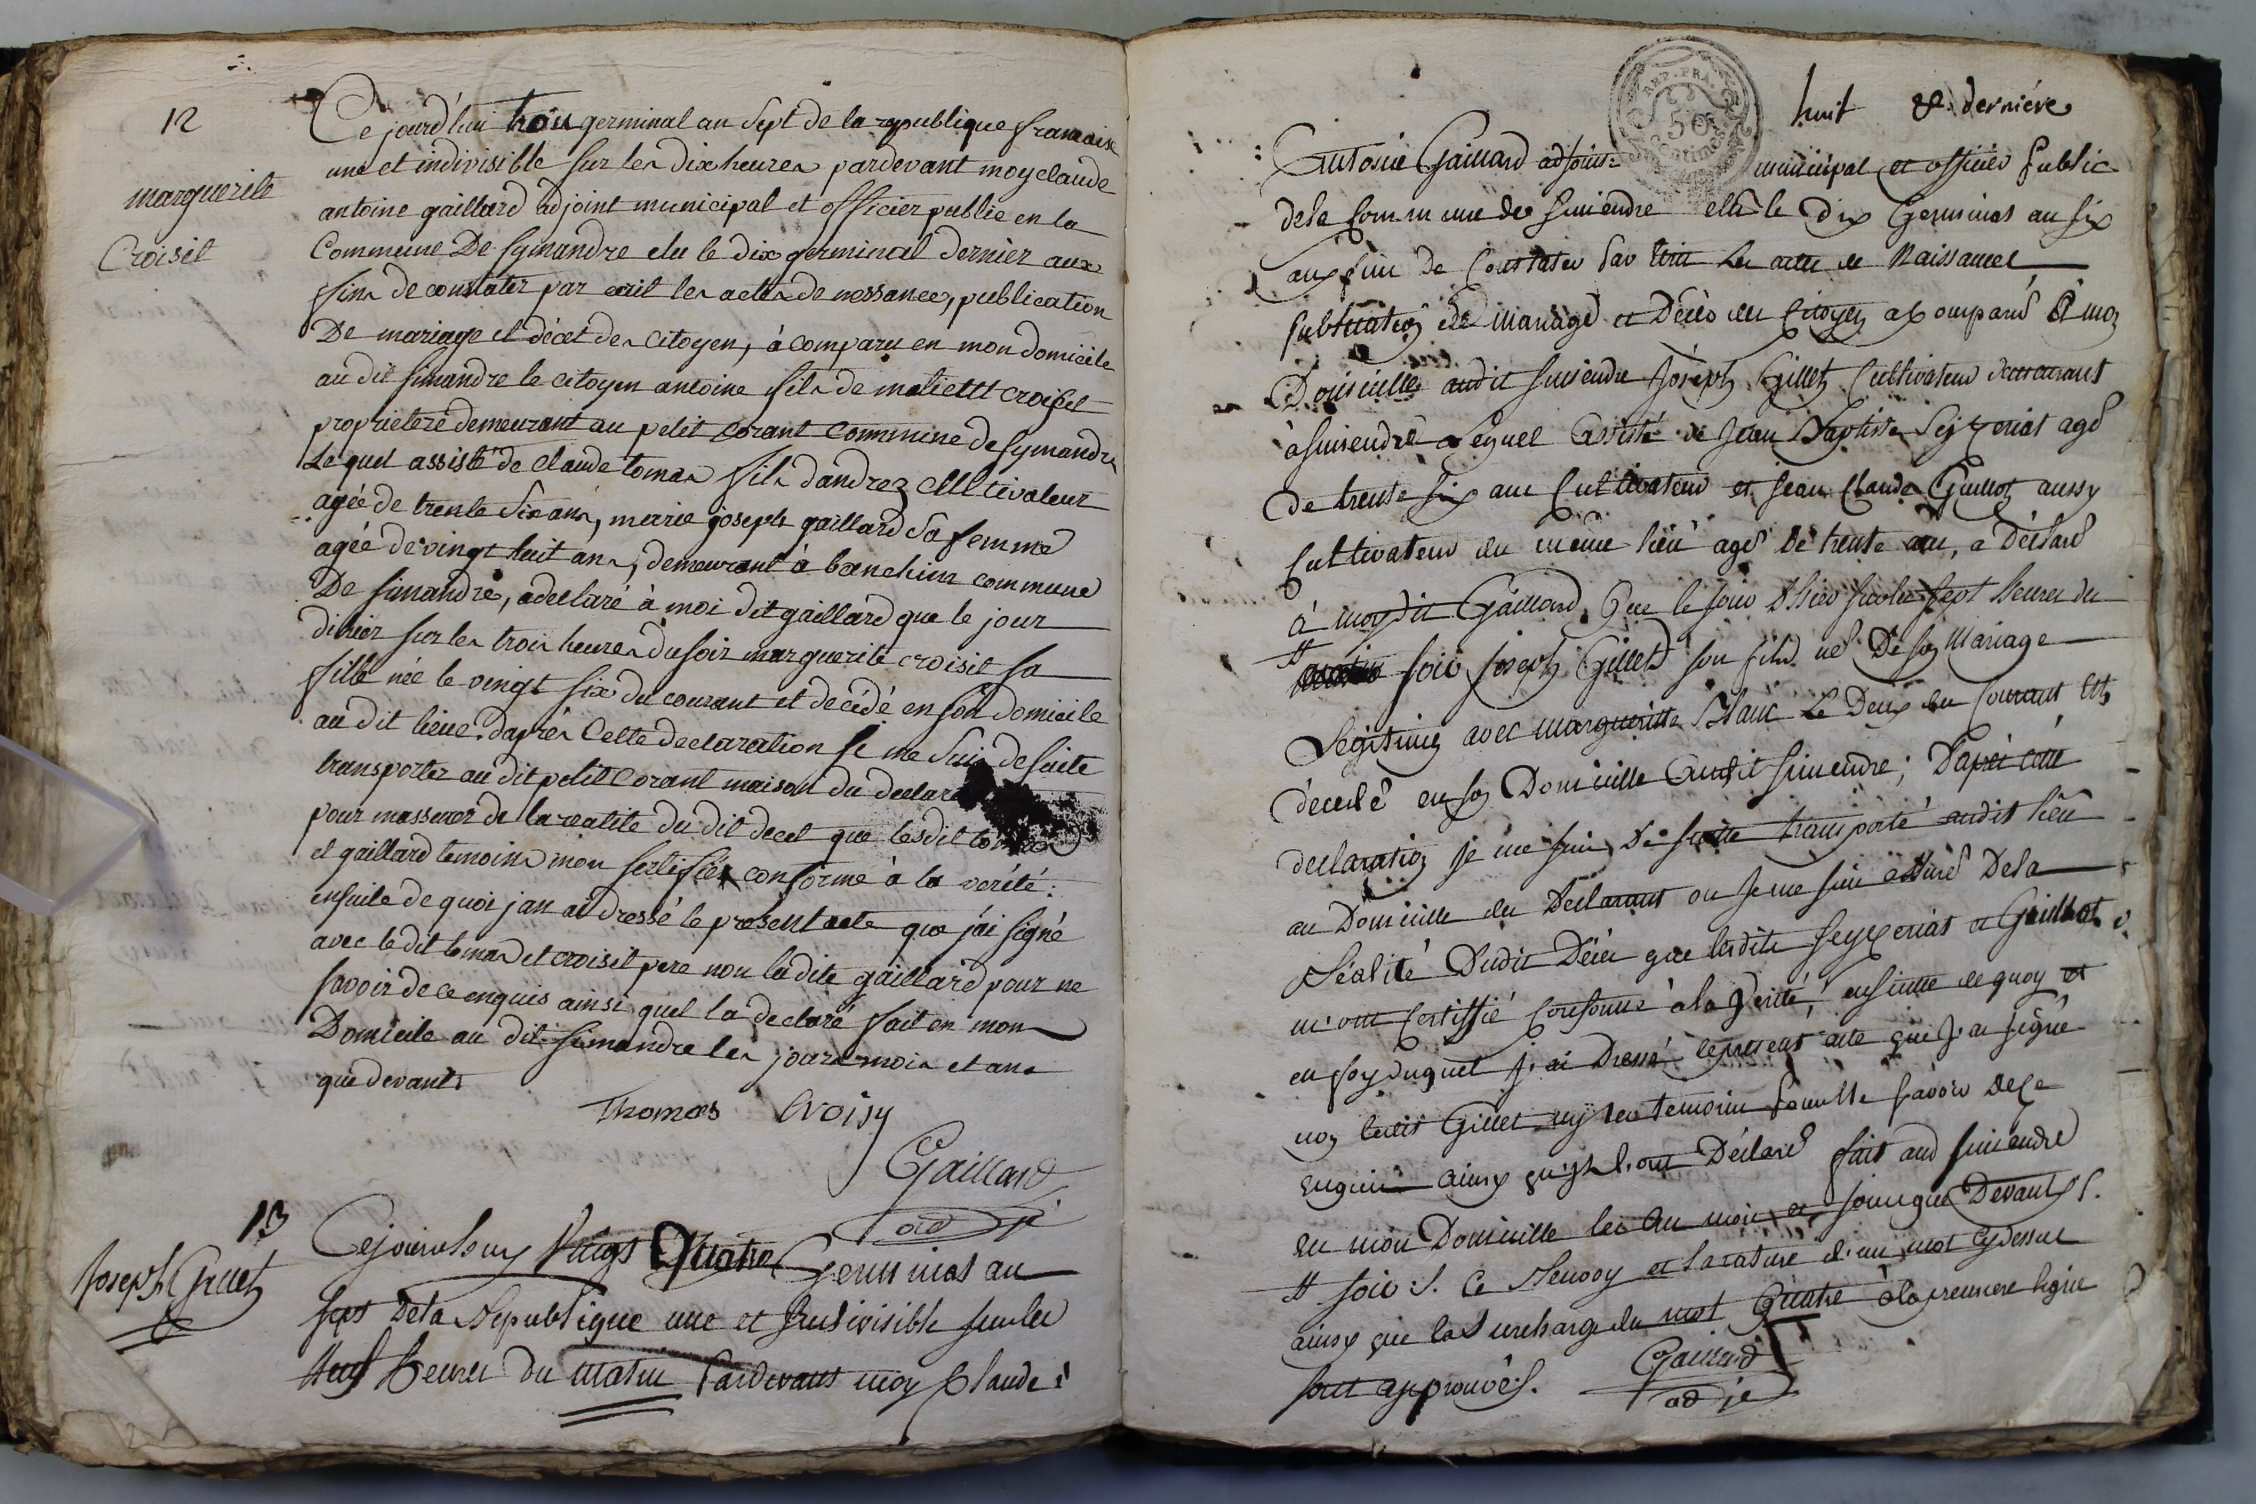 12
marguerite
Croisit
Ce jourd'hui trois germinal an Sept de la republique francaise
une et indivisible sur les dix heures pardevant moy claude
antoine gaillard adjoint municipal et officier public en la
Commune De Symandre elu le dix germinal dernier aux
fins de constater par ecrit les actes de nessance, publication
De mariage et décet des citoyen, à comparu en mon domicile
au dit simandre le citoyen antoine fils de croisit
proprietere demeurant au petit Corant Commune de Symandre
Lequel assisté de Claude tomas fils dandrez cultivateur
agée de trente Six ans, marie joseph gaillard Sa femme
agée de vingt huit ans, demeurant à banchin commune
De simandre, a declaré à moi dit gaillard que le jour
dihier sur les trois heures du soir marguerite croisit sa
fille née le vingt six du courant et decédé en son domicile
au dit lieue. daprés Cette declaration je me suis de suite
transporter au dit petit Corant maison du declara
pour massurer de la realité du dit decet que lesdit tomas
et gaillard temoins mon sertifiés conforme à la verité:
ensuite de quoi jan ai dressé le présent acte que j'ai signé
avec le dit tomas et croisit pere non la dite gaillard pour ne
savoir de ce enquis ainsi quel la declaré fait en mon
Domicile au dit simandre les jours mois et ans
que devant
Thomas Croisy
Gaillard
adj
13
Joseph Gillet
Cejourdhuy Vingt Quatre Germinal an
Sept Dela Republique une et Indivisible sur les
Neuf heures Du matin Pardevant moy Claude
REP. FRA.
50
Centimes
huit & derniére
Antoine Gaillard adjoint municipal et officier public
dela Commune de Simendre elû le Dix Germinal an Six
aux fins de Constater Par Ecrit Les actes de Naissances
publication de mariage et Décès des Citoyen a Comparû à mon
Domicille audit Simendre Joseph Gillet Cultivateur demeurant
à Simendre Lequel assisté de Jean Baptiste Seyzeriat agé
de trente six ans Cultivateur et Jean Claude Guillot aussy
Cultivateur du même lieu agé De trente ans, a Déclaré
à moy dit Gaillard Que le jour d'hier sur les sept heures du
# soir Joseph Gillet son fils né De son Mariage
Legitime avec marguerite Blanc Le Deux du Courant Est
décedé en son Domicille Audit Simendre; D'aprés cette
declaration je me suis De suitte transporté audit lieu
au Domicille du Declarant ou Je me suis assuré Dela
Réalité Dudit Décés que lesdits Seyzeriat et Guillot
m'ont Certiffié Conforme à la Verité, ensuitte de quoy et
en foy duquel J'ai Dressé le present acte que J'ai signé
non ledit Gillet ny les temoins pour ne savoir De Ce
enquis ainsy qu'ils l'ont Déclaré fait aud Simendre
en mon Domicille les An mois et jour que Devant /.
# soir /. Ce Renvoy et la rature d'un mot Cydessus
ainsy que la Surcharge du mot Quatre à la premiere ligne
sont approuvés /.
Gaillard
adj